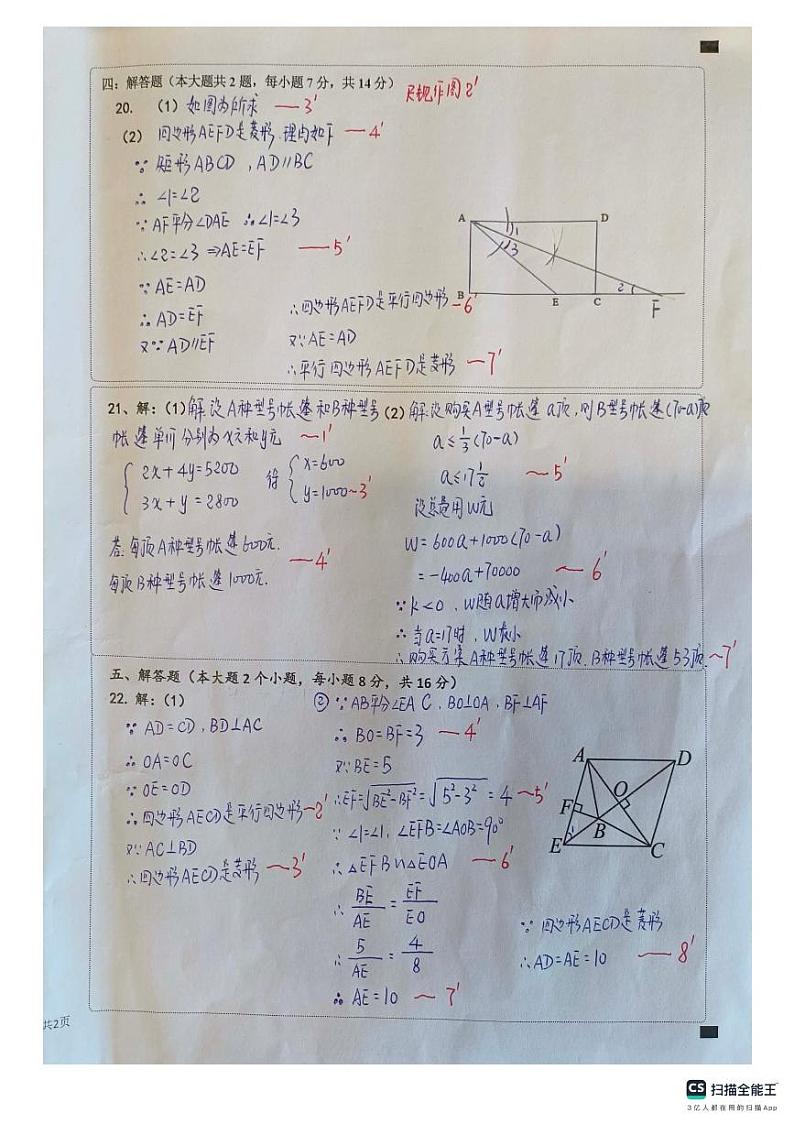 四：解答题（本大题共2题，每小题7分，共14分）
尺规作图2'
20. （1）如图为所求 —3'
（2）四边形AEFD是菱形.理由如下 —4'
∵ 矩形ABCD，AD∥BC
∴ ∠1=∠2
∵ AF平分∠DAE ∴∠1=∠3
∴∠2=∠3 ⇒AE=EF —5'
∵ AE=AD
∴ AD=EF
又∵ AD∥EF
∴四边形AEFD是平行四边形 —6'
又∵AE=AD
∴平行四边形AEFD是菱形 —7'
A D
1
3
2
B E C F
21、解：（1）解设A种型号帐篷和B种型号
帐篷单价分别为x元和y元 —1'
2x+4y=5200
3x+y=2800
得
x=600
y=1000 —3'
答:每顶A种型号帐篷600元.
每顶B种型号帐篷1000元. —4'
（2）解:设购买A型号帐篷a顶,则B型号帐篷(70-a)顶
a≤1/3(70-a)
a≤17 1/2 —5'
设总费用W元
W=600a+1000(70-a)
=-400a+70000 —6'
∵k<0，W随a增大而减小
∴当a=17时，W最小
∴购买方案A种型号帐篷17顶.B种型号帐篷53顶. —7'
五、解答题（本大题2个小题，每小题8分，共16分）
22. 解：（1）
∵ AD=CD，BD⊥AC
∴ OA=OC
∵ OE=OD
∴四边形AECD是平行四边形 —2'
又∵AC⊥BD
∴四边形AECD是菱形 —3'
② ∵AB平分∠EAC，BO⊥OA，BF⊥AF
∴ BO=BF=3 —4'
又∵BE=5
∴EF=√BE²-BF²=√5²-3²=4 —5'
∵ ∠1=∠1，∠EFB=∠AOB=90°
∴ △EFB∽△EOA —6'
∴ BE/AE=EF/EO
∴ 5/AE=4/8
∴ AE=10 —7'
A D
O
F
B
1
E C
∵ 四边形AECD是菱形
∴AD=AE=10 —8'
共2页
CS 扫描全能王
3亿人都在用的扫描App